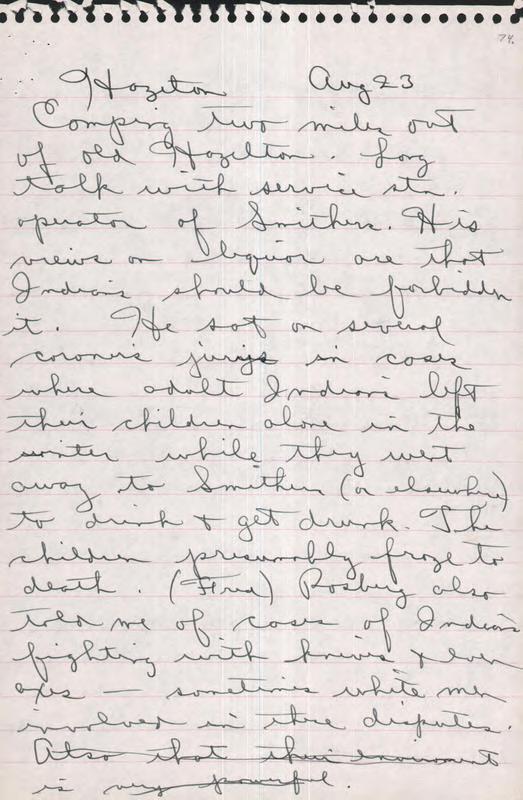 74.
Hazelton Aug 23
Camping two miles out
of old Hazelton. Long
talk with service stn.
operator of Smithers. His
views on liquor are that
Indians should be forbidden
it. He sat on several
coroner's jurys in cases
where adult Indians left
their children alone in the
winter while they went
away to Smithers (or elsewhere)
to drink & get drunk. The
children presumably froze to
death. (Fred) Rosberg also
told me of cases of Indians
fighting with knives & even
axes — sometimes white men
involved in these disputes.
Also that their enviroment
is very powerful.